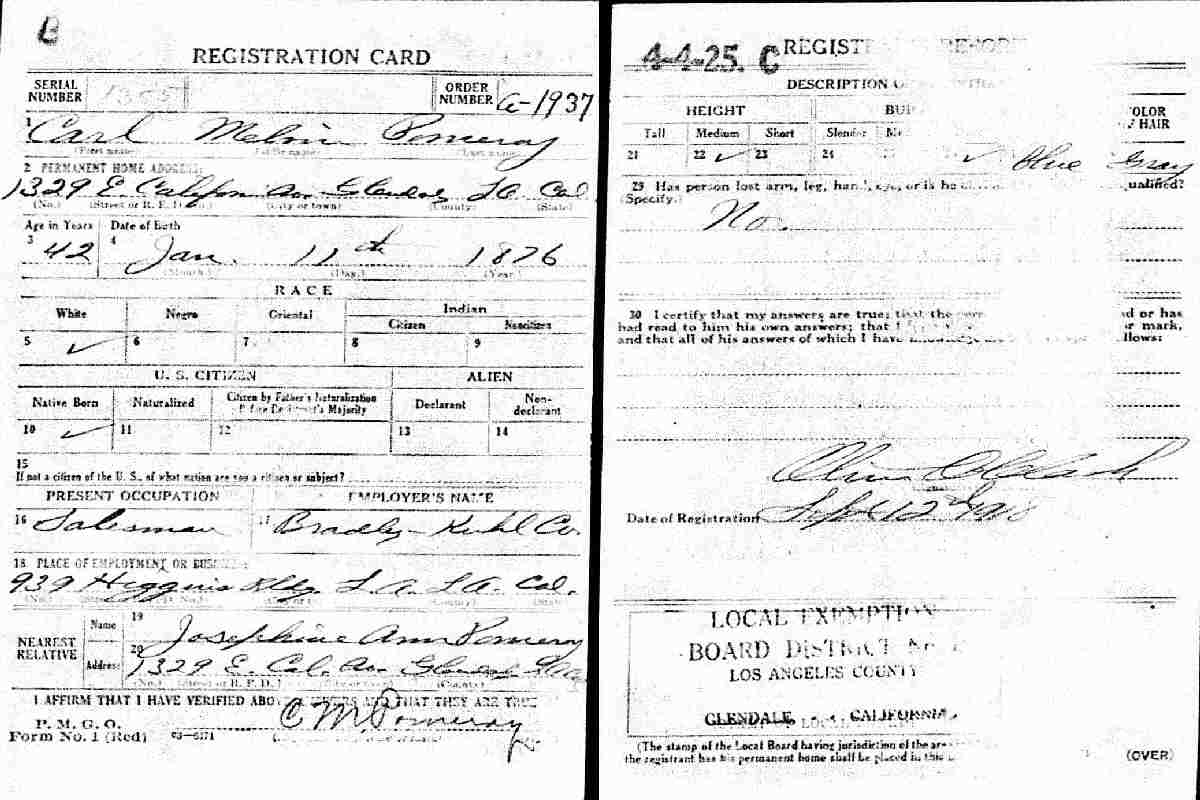 REGISTRATION CARD
SERIAL NUMBER 1355
ORDER NUMBER a-1937
1 Carl Melvin Pomeroy
(First name) (Middle name) (Last name)
2 PERMANENT HOME ADDRESS:
1329 E. Californ Av. Glendale L.A. Cal.
(No.) (Street or R. F. D. No.) (City or town) (County) (State)
Age in Years Date of Birth
3 42 4 Jan. 11th 1876
(Month.) (Day.) (Year.)
RACE
White Negro Oriental Indian
Citizen Noncitizen
5 ✓ 6 7 8 9
U. S. CITIZEN ALIEN
Native Born Naturalized Citizen by Father's Naturalization Before Registrant's Majority Declarant Non-declarant
10 ✓ 11 12 13 14
15
If not a citizen of the U. S., of what nation are you a citizen or subject?
PRESENT OCCUPATION EMPLOYER'S NAME
16 Salesman 17 Bradley-Kuhl Co.
18 PLACE OF EMPLOYMENT OR BUSINESS:
939 Higgins Bldg. L.A. L.A. Cal.
NEAREST RELATIVE Name 19 Josephine Ann Pomeroy
Address 20 1329 E. Cal. Av. Glendale
(No.) (Street or R. F. D.) (City or town) (County)
I AFFIRM THAT I HAVE VERIFIED ABOVE ANSWERS AND THAT THEY ARE TRUE
P. M. G. O.
Form No. 1 (Red) 03-6171
C M Pomeroy
4-4-25. C REGISTRAR'S REPORT
DESCRIPTION OF
HEIGHT BUI COLOR OF HAIR
Tall Medium Short Slender Me
21 22 ✓ 23 24 ✓ Blue Gray
29 Has person lost arm, leg, hand, eye, or is he qualified?
(Specify.) No.
30 I certify that my answers are true; that the per d or has
had read to him his own answers; that I r mark,
and that all of his answers of which I have knowledge llows:
Date of Registration Sept 12th 1918
LOCAL EXEMPTION
BOARD DISTRICT No.
LOS ANGELES COUNTY
GLENDALE, CALIFORNIA.
(The stamp of the Local Board having jurisdiction of the area
the registrant has his permanent home shall be placed in this
(OVER)